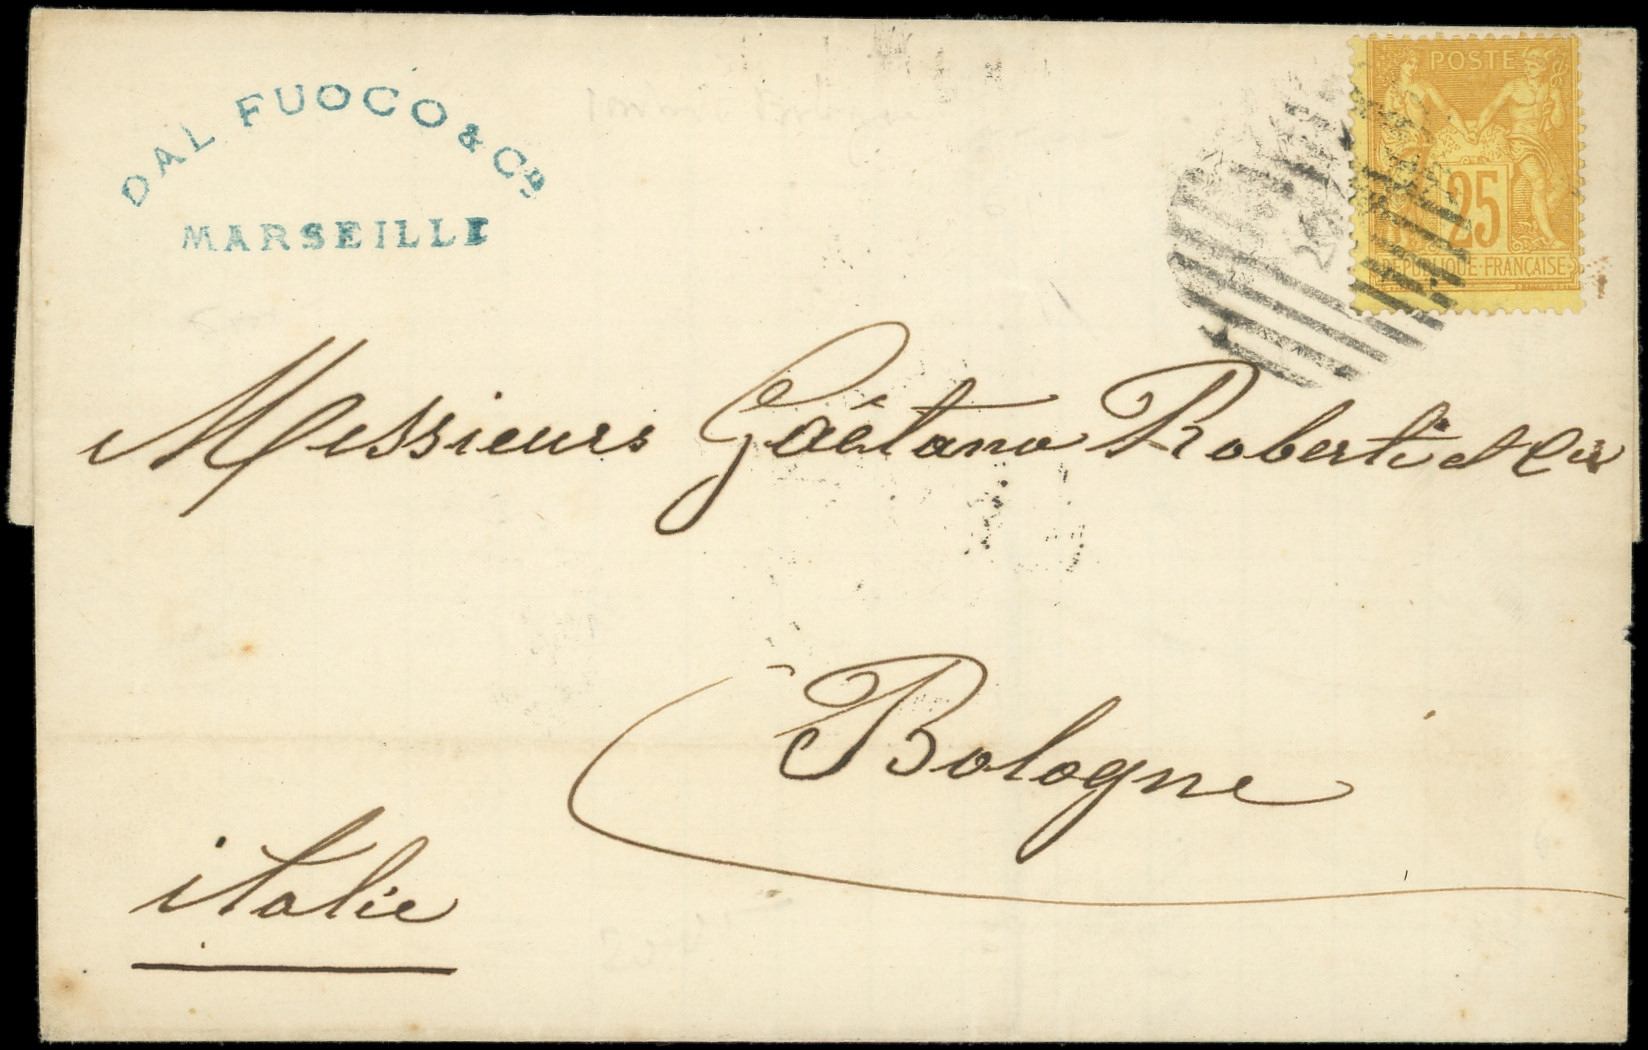 DAL FUOCO & Co
MARSEILLE
POSTE
25
REPUBLIQUE FRANÇAISE
Messieurs Gaëtano Roberti et Cie
Bologne
italie